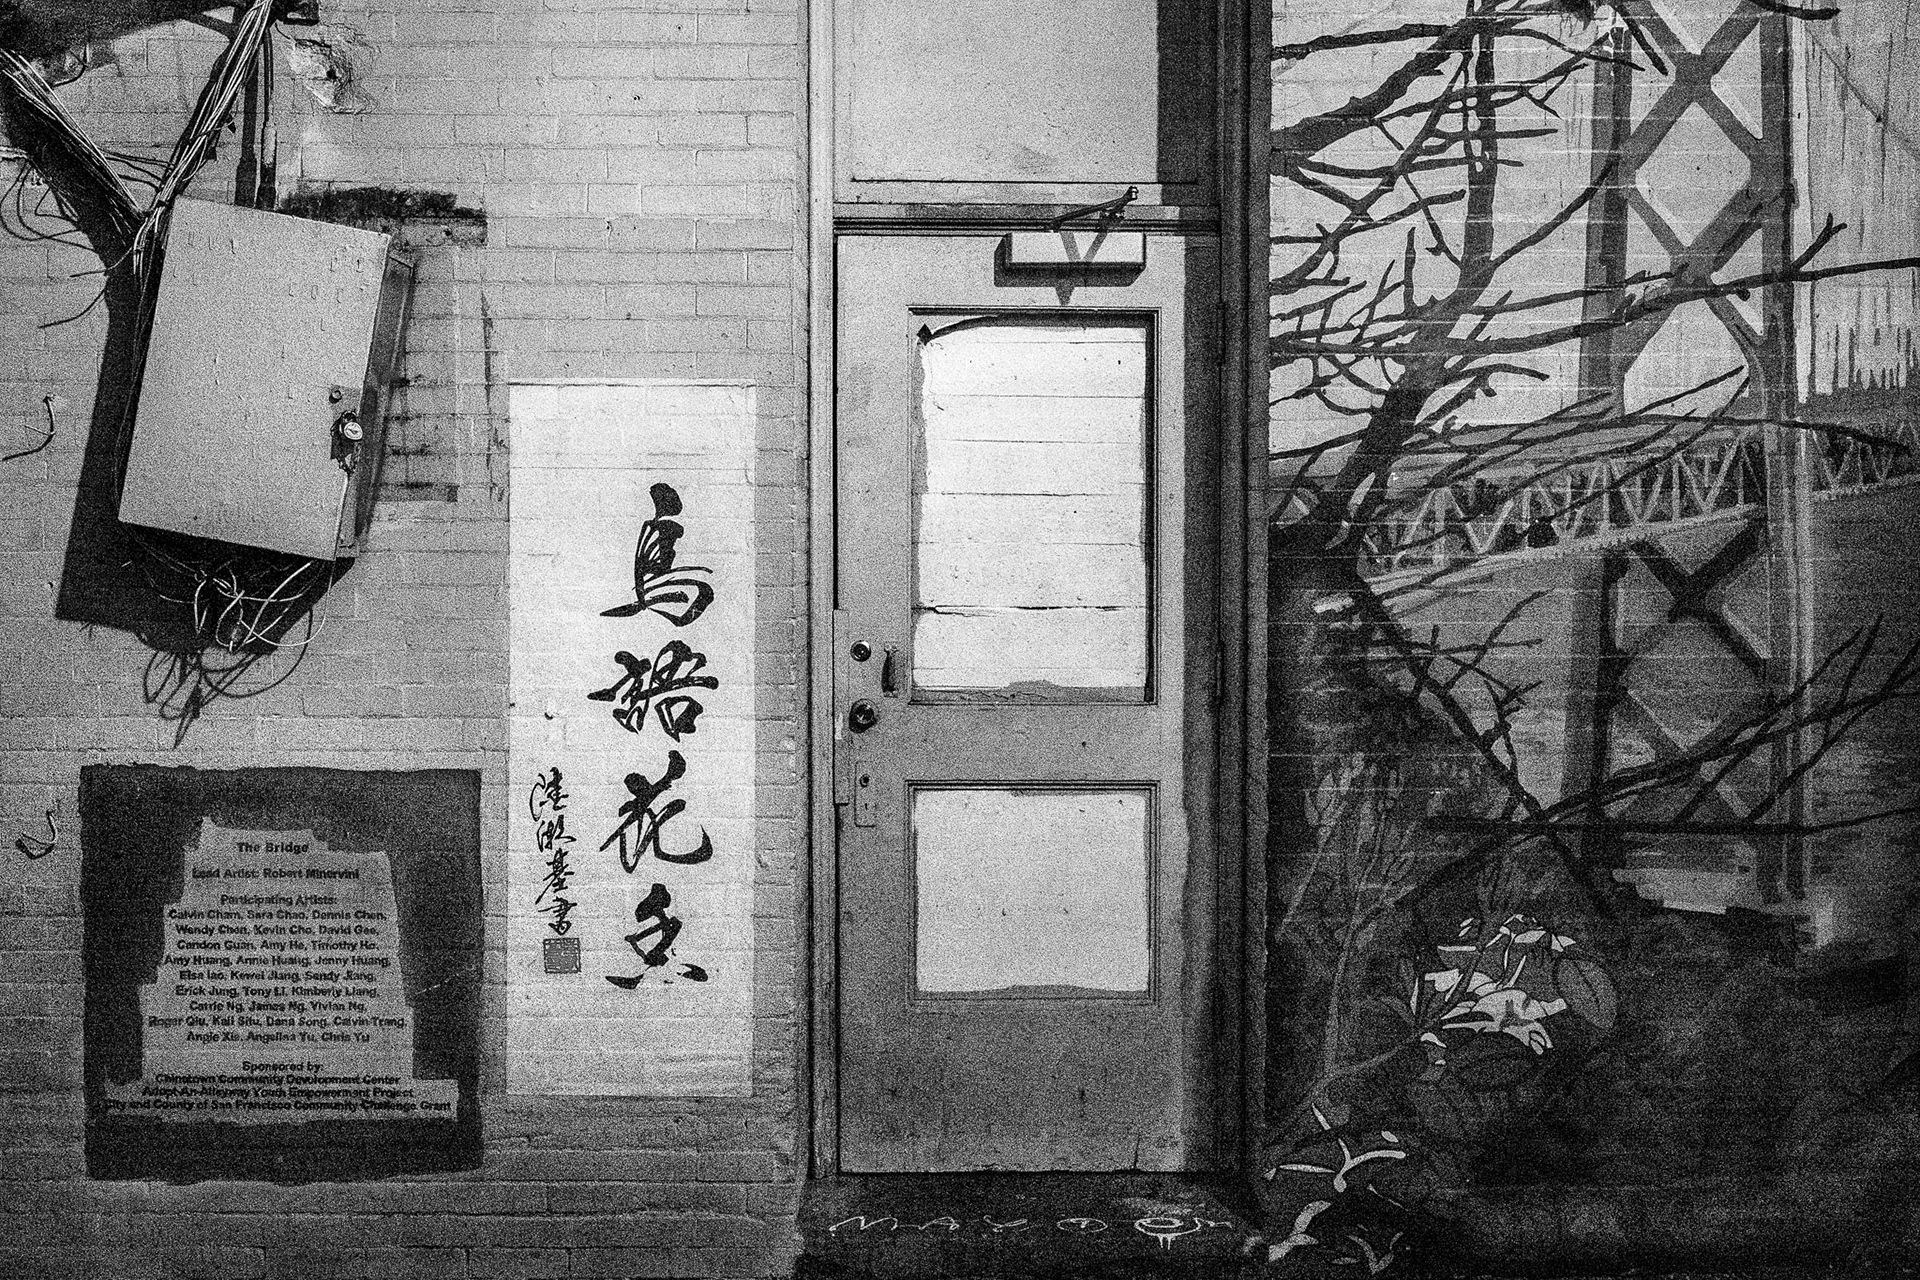 The Bridge
Lead Artist: Robert Minervini
Participating Artists:
Calvin Cham, Sara Chao, Dennis Chen,
Wendy Chen, Kevin Cho, David Gee,
Candon Guan, Amy He, Timothy Ho,
Amy Huang, Annie Huang, Jenny Huang,
Elsa Iao, Kewei Jiang, Sandy Jiang,
Erick Jung, Tony Li, Kimberly Liang,
Carrie Ng, James Ng, Vivian Ng,
Roger Qiu, Kali Situ, Dana Song, Calvin Trang,
Angie Xie, Angelina Yu, Chris Yu
Sponsored by:
Chinatown Community Development Center
Adopt-An-Alleyway Youth Empowerment Project
City and County of San Francisco Community Challenge Grant
鳥語花香
基書